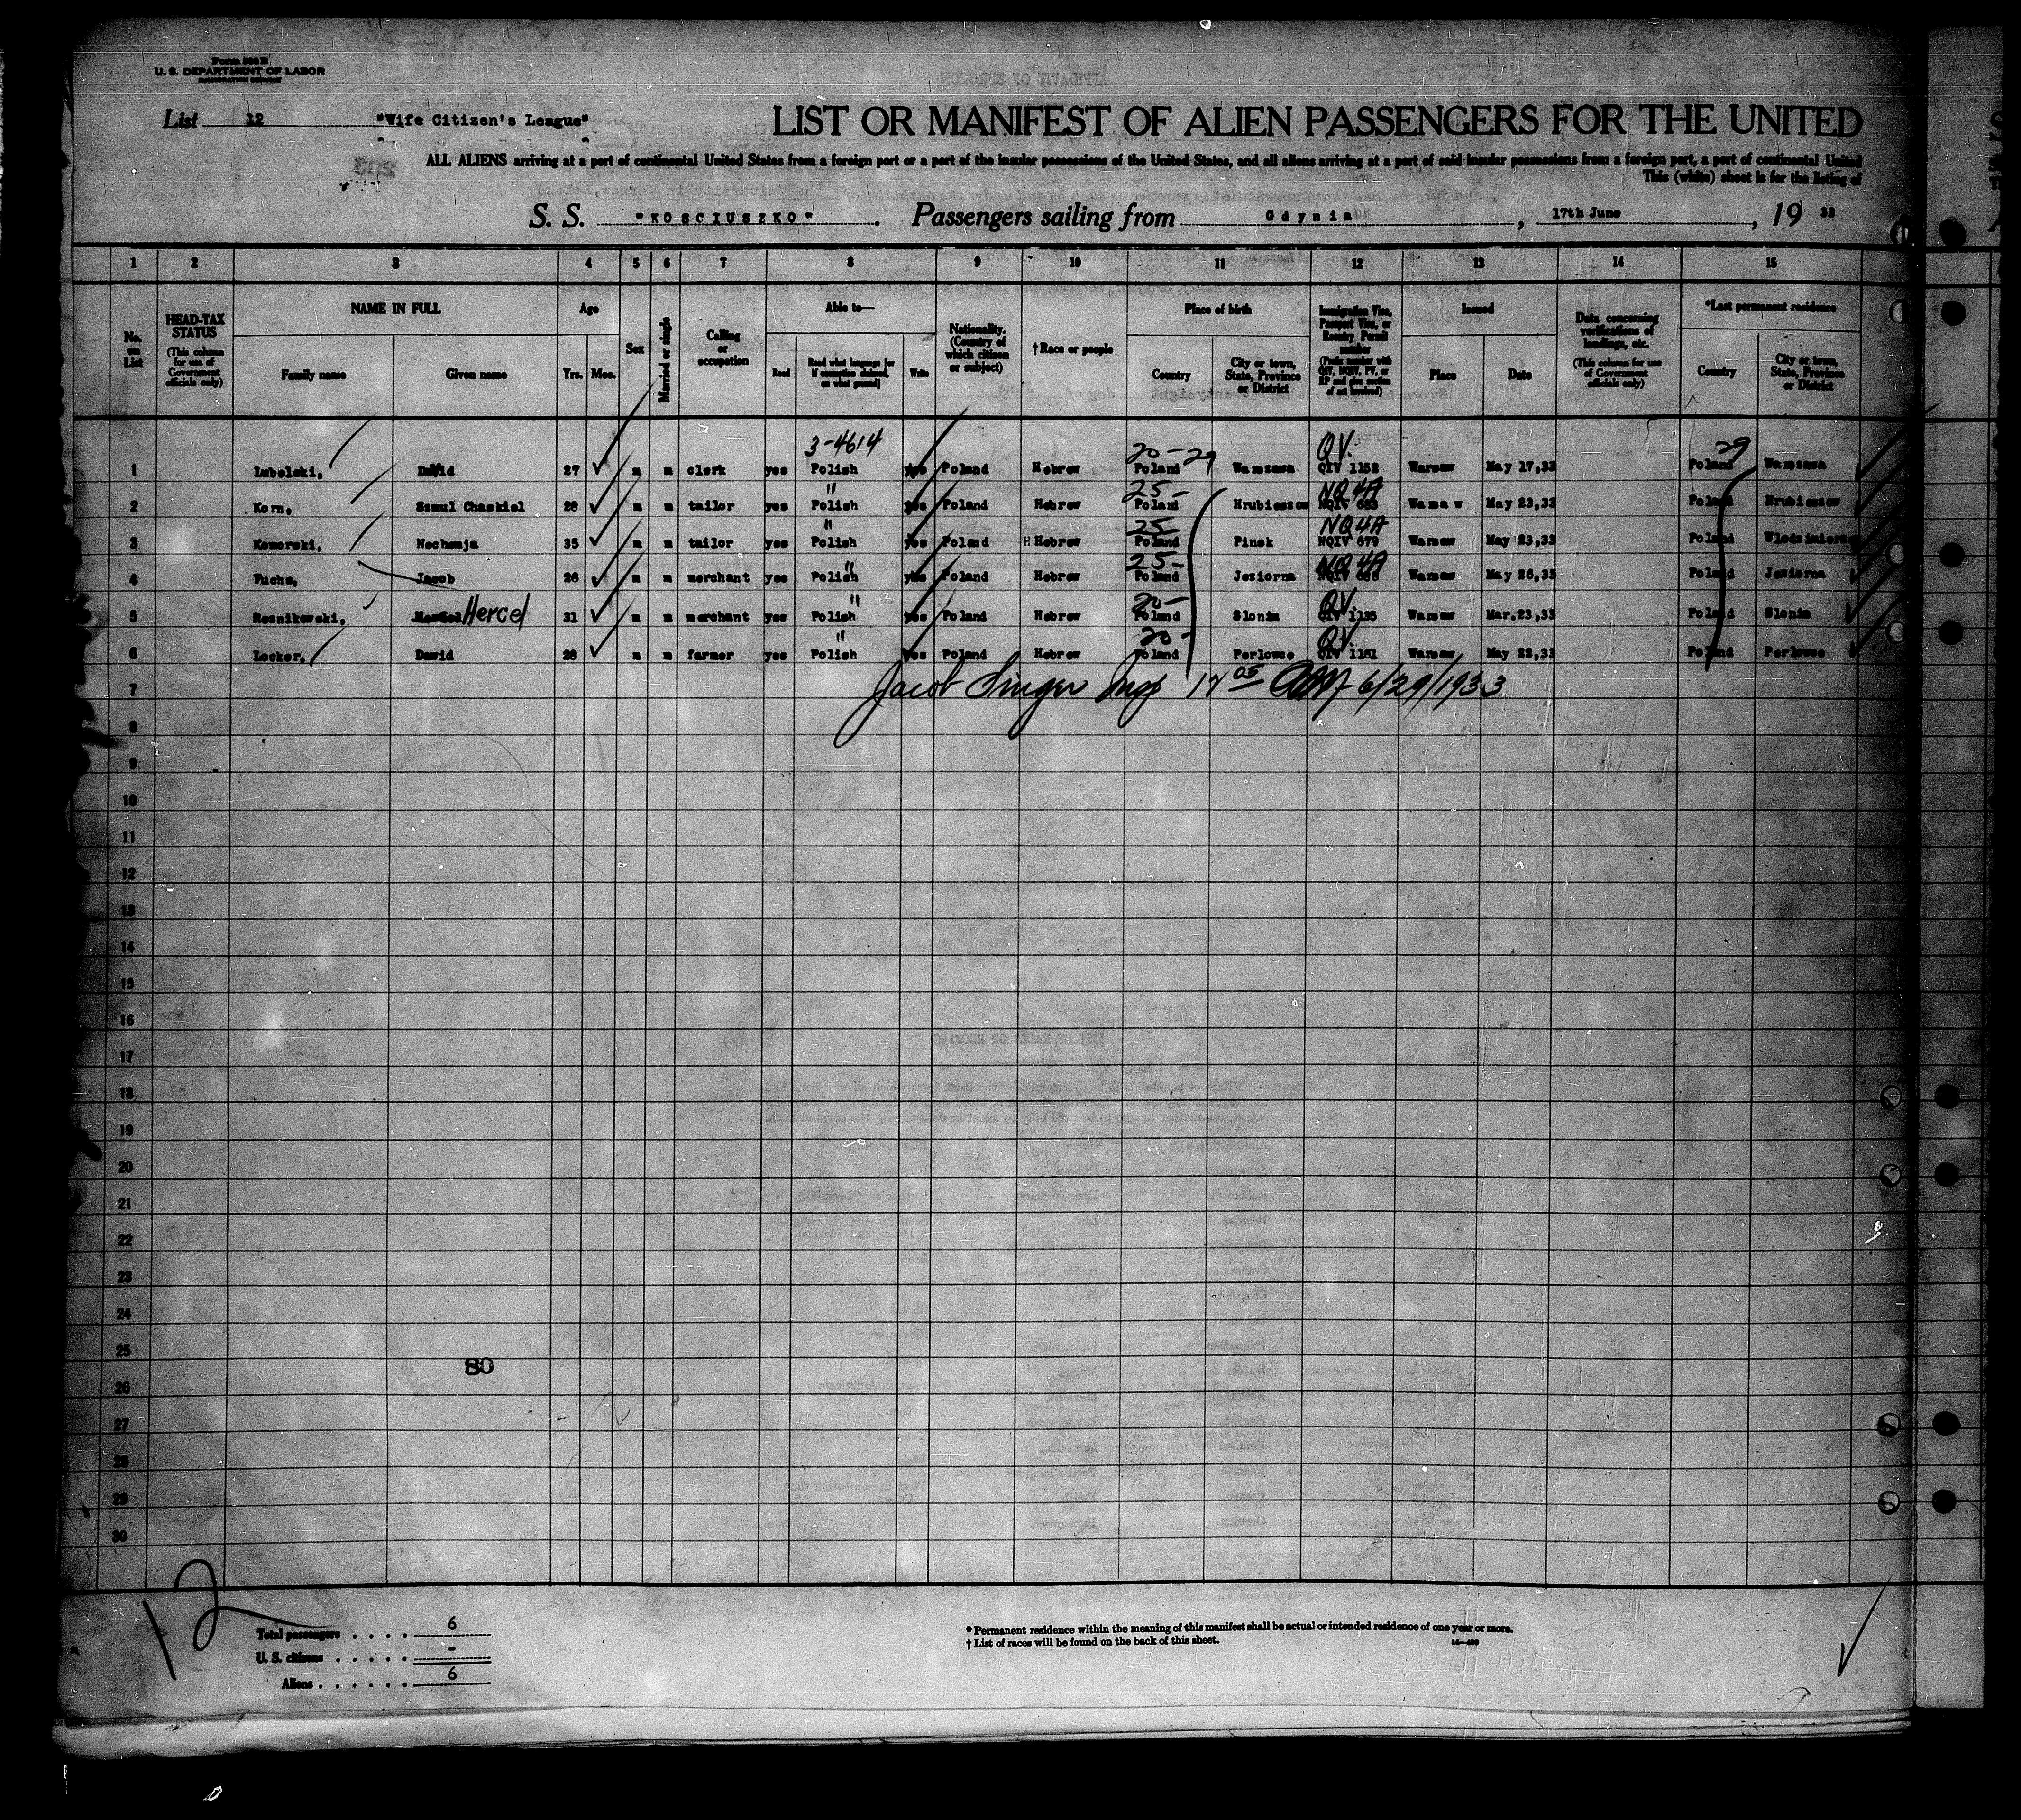 Form 500 B
U. S. DEPARTMENT OF LABOR
List 12 "Wife Citizen's League"
LIST OR MANIFEST OF ALIEN PASSENGERS FOR THE UNITED
ALL ALIENS arriving at a port of continental United States from a foreign port or a port of the insular possessions of the United States, and all aliens arriving at a port of said insular possessions from a foreign port, a port of continental United
This (white) sheet is for the listing of
S. S. "KOSCIUSZKO". Passengers sailing from Gdynia, 17th June, 19 33
1 2 3 4 5 6 7 8 9 10 11 12 13 14 15
No. on List
HEAD-TAX STATUS (This column for use of Government officials only)
NAME IN FULL
Family name Given name
Age
Yrs. Mos.
Sex
Married or single
Calling or occupation
Able to—
Read Read what language [or if exemption claimed, on what ground] Write
Nationality. (Country of which citizen or subject)
† Race or people
Place of birth
Country City or town, State, Province or District
Immigration Visa, Passport Visa, or Reentry Permit number (Prefix number with QIV, NQIV, PV, or RP and give section of act involved)
Issued
Place Date
Data concerning verifications of landings, etc. (This column for use of Government officials only)
*Last permanent residence
Country City or town, State, Province or District
3-4614 20-29 QV. 29
1 Lubelski, David 27 m m clerk yes Polish yes Poland Hebrew Poland Warszawa QIV 1152 Warsaw May 17,33 Poland Warszawa
" 25- NQ4A
2 Korn, Szmul Chaskiel 28 m m tailor yes Polish yes Poland Hebrew Poland Hrubieszow NQIV Warsaw May 23,33 Poland Hrubieszow
" 25- NQ4A
3 Komorski, Nechemja 35 m m tailor yes Polish yes Poland H Hebrew Poland Pinsk NQIV 679 Warsaw May 23,33 Poland
" 25- NQ4A
4 Fuchs, Jacob 26 m m merchant yes Polish yes Poland Hebrew Poland Jeziorna NQIV Warsaw May 26,33 Poland Jezierna
" 20- QV.
5 Reznikowski, Hercel 31 m m merchant yes Polish yes Poland Hebrew Poland Slonim QIV 1135 Warsaw Mar.23,33 Poland Slonim
" 20- QV.
6 Locker, Dawid 28 m m farmer yes Polish yes Poland Hebrew Poland Perlowce QIV 1161 Warsaw May 22,33 Poland Perlowce
7 Jacob Singer Insp 6/29/1933
8
9
10
11
12
13
14
15
16
17
18
19
20
21
22
23
24
25
80
26
27
28
29
30
12
Total passengers . . . . 6
U. S. citizens . . . . . -
Aliens . . . . . . 6
* Permanent residence within the meaning of this manifest shall be actual or intended residence of one year or more.
† List of races will be found on the back of this sheet.